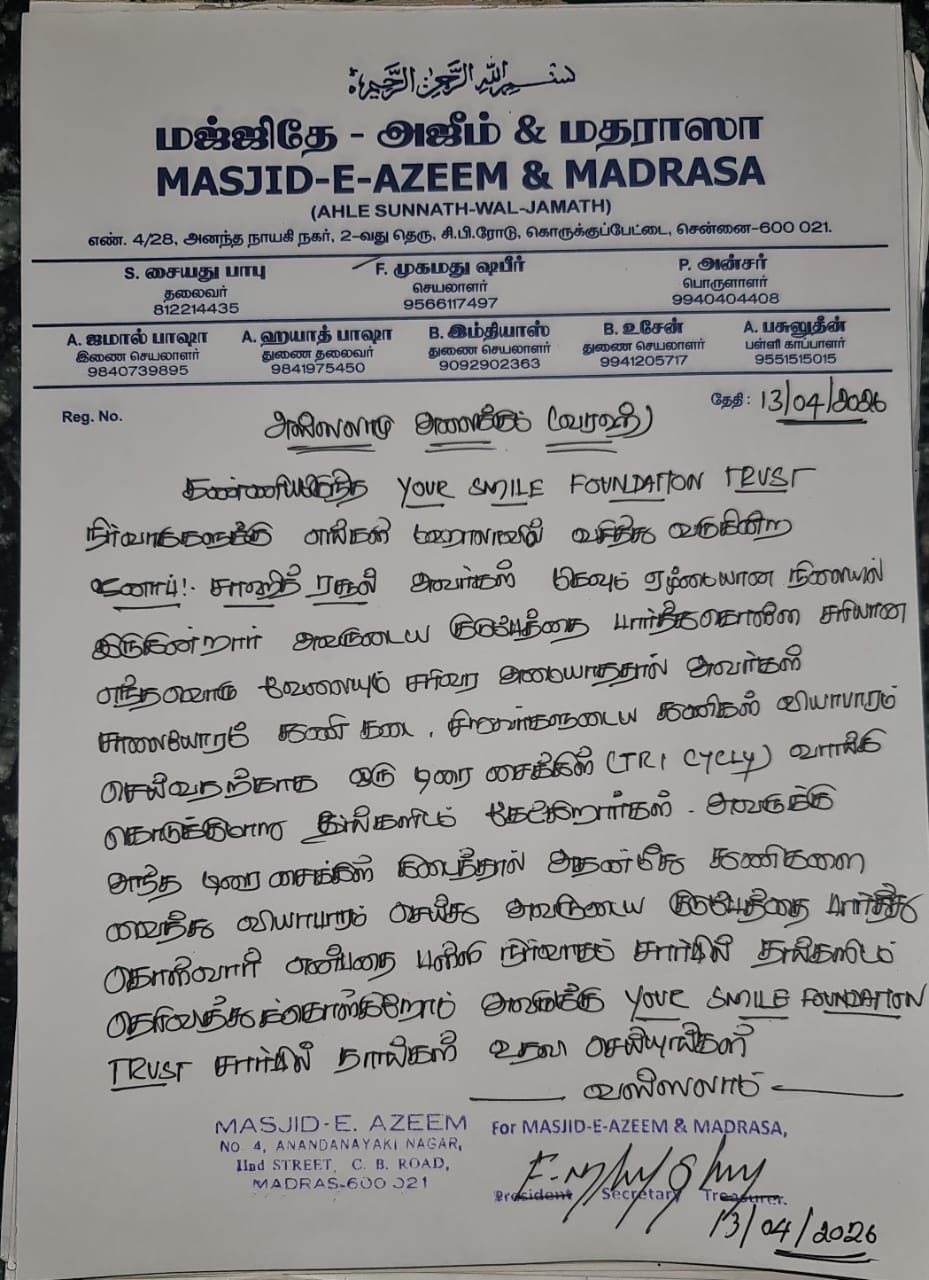 بسم الله الرحمن الرحيم
மஜ்ஜிதே - அஜீம் & மதராஸா
MASJID-E-AZEEM & MADRASA
(AHLE SUNNATH-WAL-JAMATH)
எண். 4/28, அனந்த நாயகி நகர், 2-வது தெரு, சி.பி.ரோடு, கொருக்குப்பேட்டை, சென்னை-600 021.
S. சையது பாபு F. முகமது ஷபீர் P. அன்சர்
தலைவர் செயலாளர் பொருளாளர்
812214435 9566117497 9940404408
A. ஜமால் பாஷா A. ஹயாத் பாஷா B. இம்தியாஸ் B. உசேன் A. பசுலுதீன்
இணை செயலாளர் துணை தலைவர் துணை செயலாளர் துணை செயலாளர் பள்ளி காப்பாளர்
9840739895 9841975450 9092902363 9941205717 9551515015
Reg. No. தேதி: 13/04/2026
அஸ்ஸலாமு அலைக்கும் (வரஹ்)
கண்ணியமிகுந்த YOUR SMILE FOUNDATION TRUST
நிர்வாகிகளுக்கு எங்கள் மஹல்லாவில் வசித்து வருகின்ற
ஜனாப்!. சாஹித் ரசூல் அவர்கள் மிகவும் ஏழ்மையான நிலையில்
இருகின்றார் அவருடைய குடும்பத்தை பார்த்துகொள்ள சரியான
எந்தவொரு வேலையும் சரிவர அமையாததால் அவர்கள்
சாலையோரக் கணி கடை, சிறுவர்களுடைய கணிகள் வியாபாரம்
செய்வதற்காக ஒரு டிரை சைக்கிள் (TRI CYCLY) வாங்கி
கொடுக்குமாறு தங்களிடம் கேட்கிறார்கள். அவருக்கு
அந்த டிரை சைக்கிள் கிடைத்தால் அதன்மீது கணிகளை
வைத்து வியாபாரம் செய்து அவருடைய குடும்பத்தை பார்த்து
கொள்வார் என்பதை பள்ளி நிர்வாகம் சார்பில் தங்களிடம்
தெரிவித்துக்கொள்கிறோம் அவருக்கு YOUR SMILE FOUNDATION
TRUST சார்பில் தாங்கள் உதவி செய்யுங்கள்
வஸ்ஸலாம்
MASJID-E. AZEEM
NO. 4, ANANDANAYAKI NAGAR,
IInd STREET, C. B. ROAD,
MADRAS-600 021
For MASJID-E-AZEEM & MADRASA,
President Secretary Treasurer.
13/04/2026